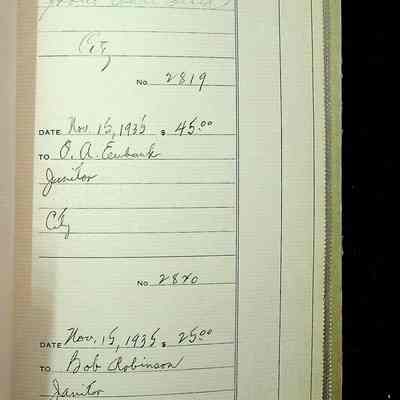 City
No. 2819
DATE Nov. 15, 1935 $ 45.00
TO O. A. Eubank
Janitor
City
No. 2820
DATE Nov. 15, 1935 $ 25.00
TO Bob Robinson
Janitor